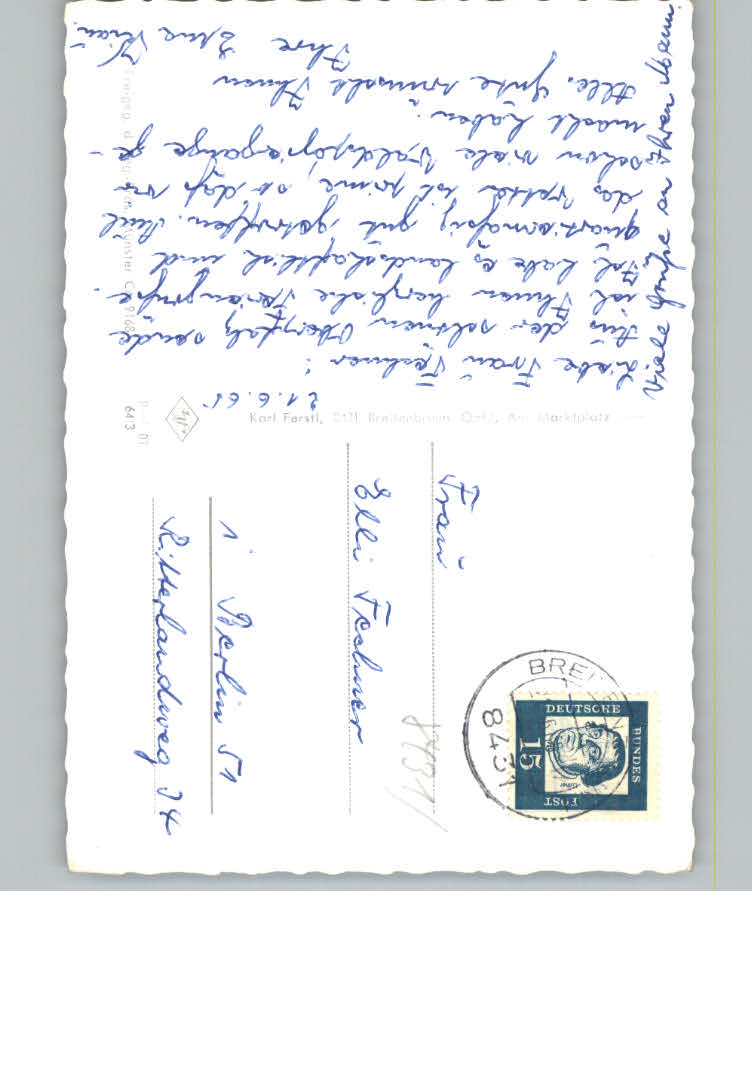 21.6.65
Liebe Frau Fechner!
Aus der schönen Oberpfalz sende
ich Ihnen herzliche Feriengrüße.
Ich habe es landschaftlich und
quartiermäßig gut getroffen. Auch
das Wetter ist prima, so daß wir
schon viele Waldspaziergänge ge-
macht haben.
Alles Gute wünscht Ihnen
Ihre
Viele Grüße an Ihren Mann.
Karl Forstl, 8431 Breitenbrunn Opf., Am Marktplatz
Agfa
6413
Frau
Elli Fechner
1 Berlin 51
Ritterlandweg 34
8431
8431
DEUTSCHE
BUNDES
POST
15
Luther